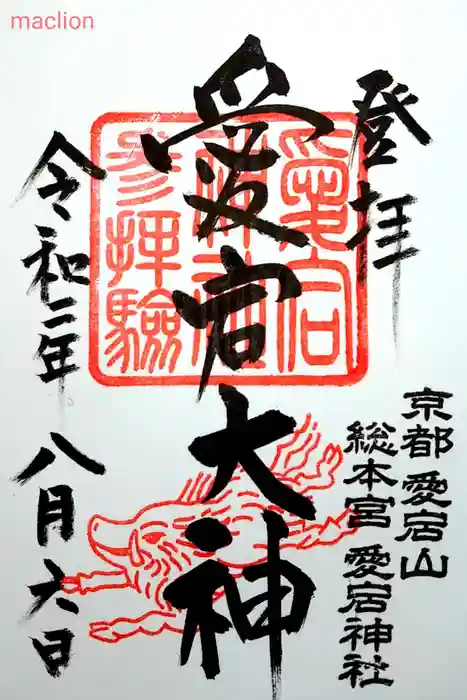 maclion
登拝
愛宕大神
愛宕
神社
参拝驗
令和二年 八月六日
京都 愛宕山
総本宮 愛宕神社